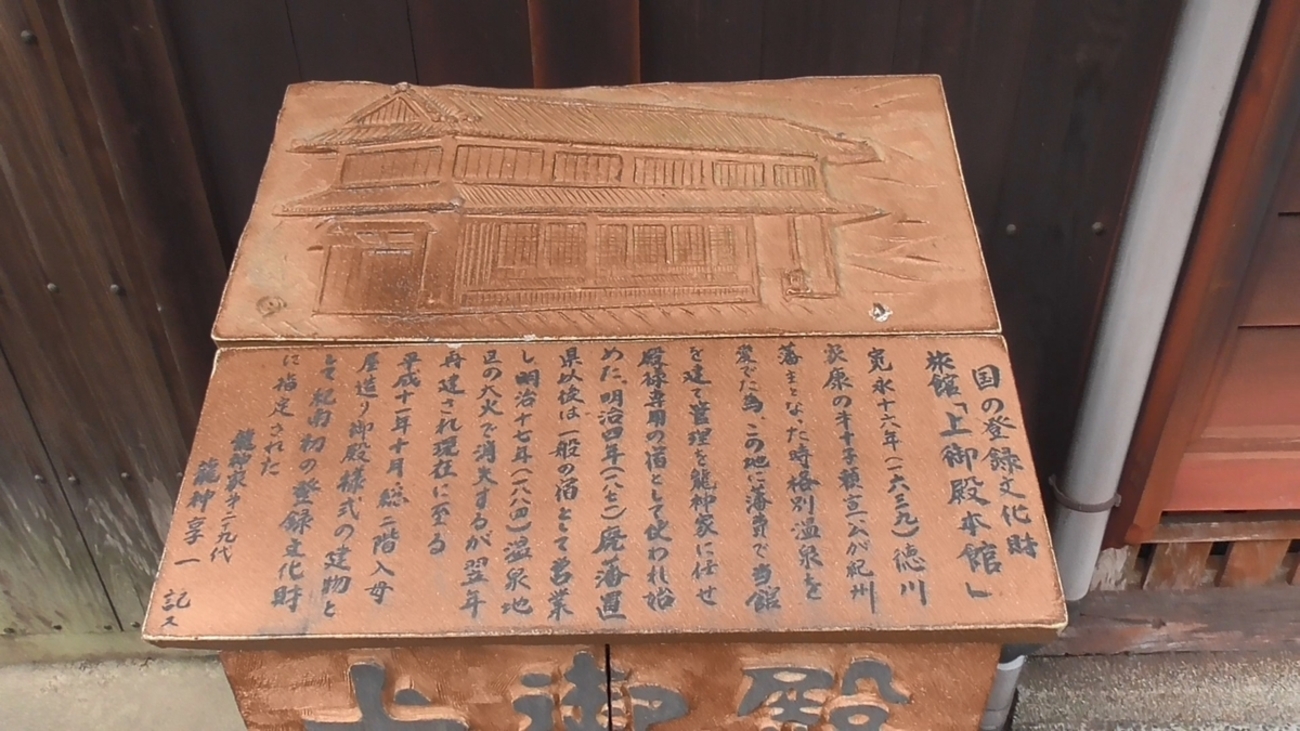 国の登録文化財
旅館「上御殿本館」
寛永十六年(一六三九)徳川
家康の才十子頼宣公が紀州
藩主となった時格別温泉を
愛でた為、この地に藩費で当館
を建て管理を龍神家に任せ
殿様専用の宿として使われ始
めた。明治四年(一八七一)廃藩置
県以後は一般の宿として営業
し明治十七年(一八八四)温泉地
区の大火で消失するが翌年
再建され現在に至る
平成十一年十月、総二階入母
屋造り御殿様式の建物と
して紀南初の登録文化財
に指定された
龍神家才二九代
龍神享一 記ス
上御殿